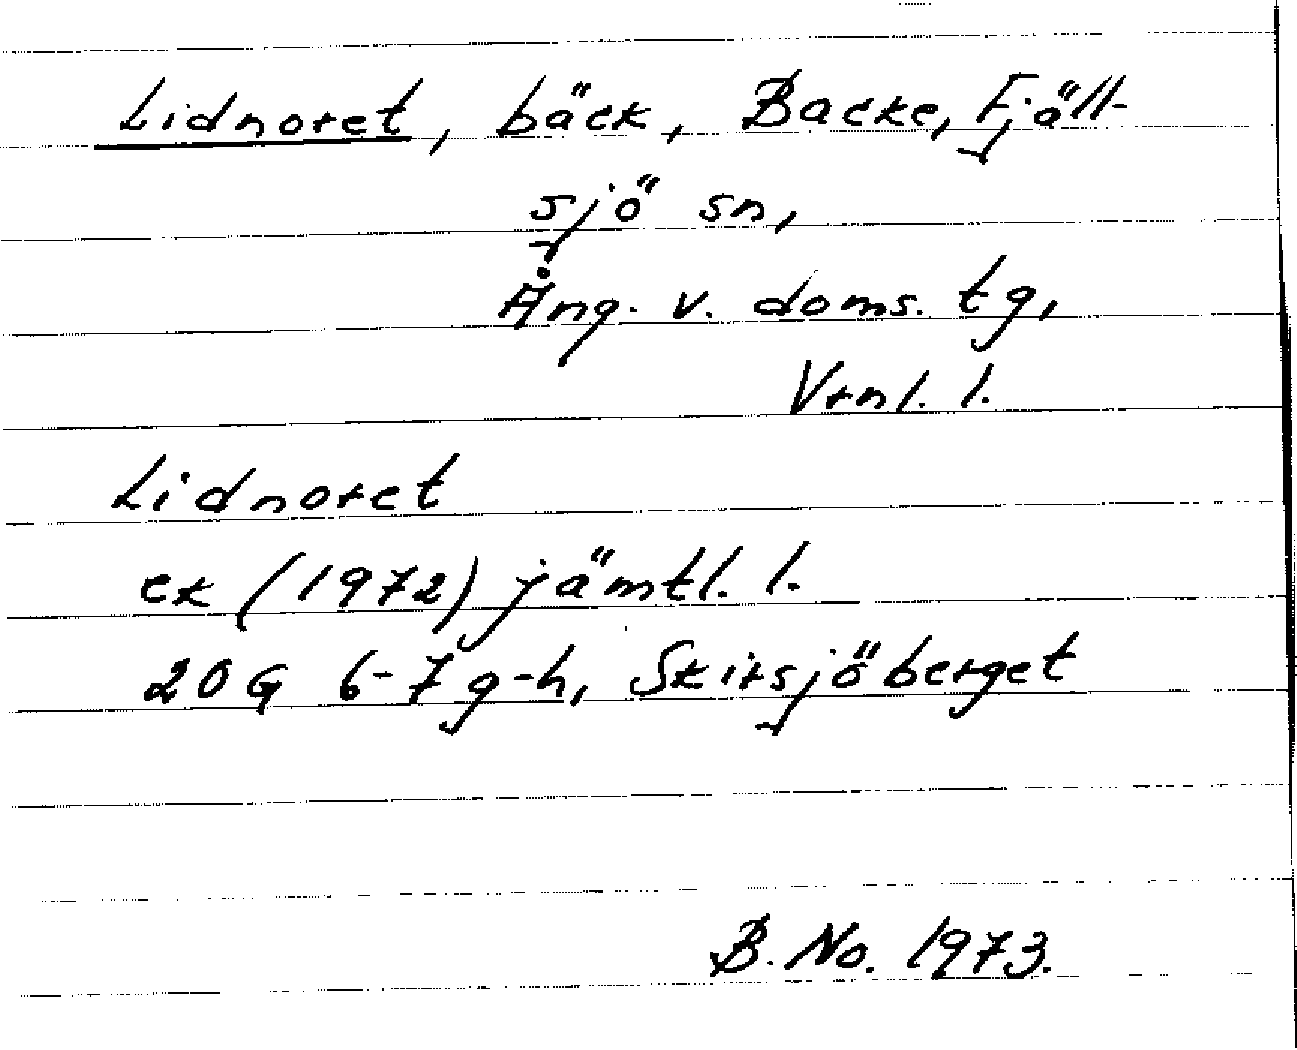 Lidnoret, bäck, Backe, Fjäll-
sjö sn,
Ång. v. doms. tg,
Vrnl. l.
Lidnoret
ek (1972) jämtl. l.
20 G 6-7 g-h, Skirsjöberget
B. No. 1973.